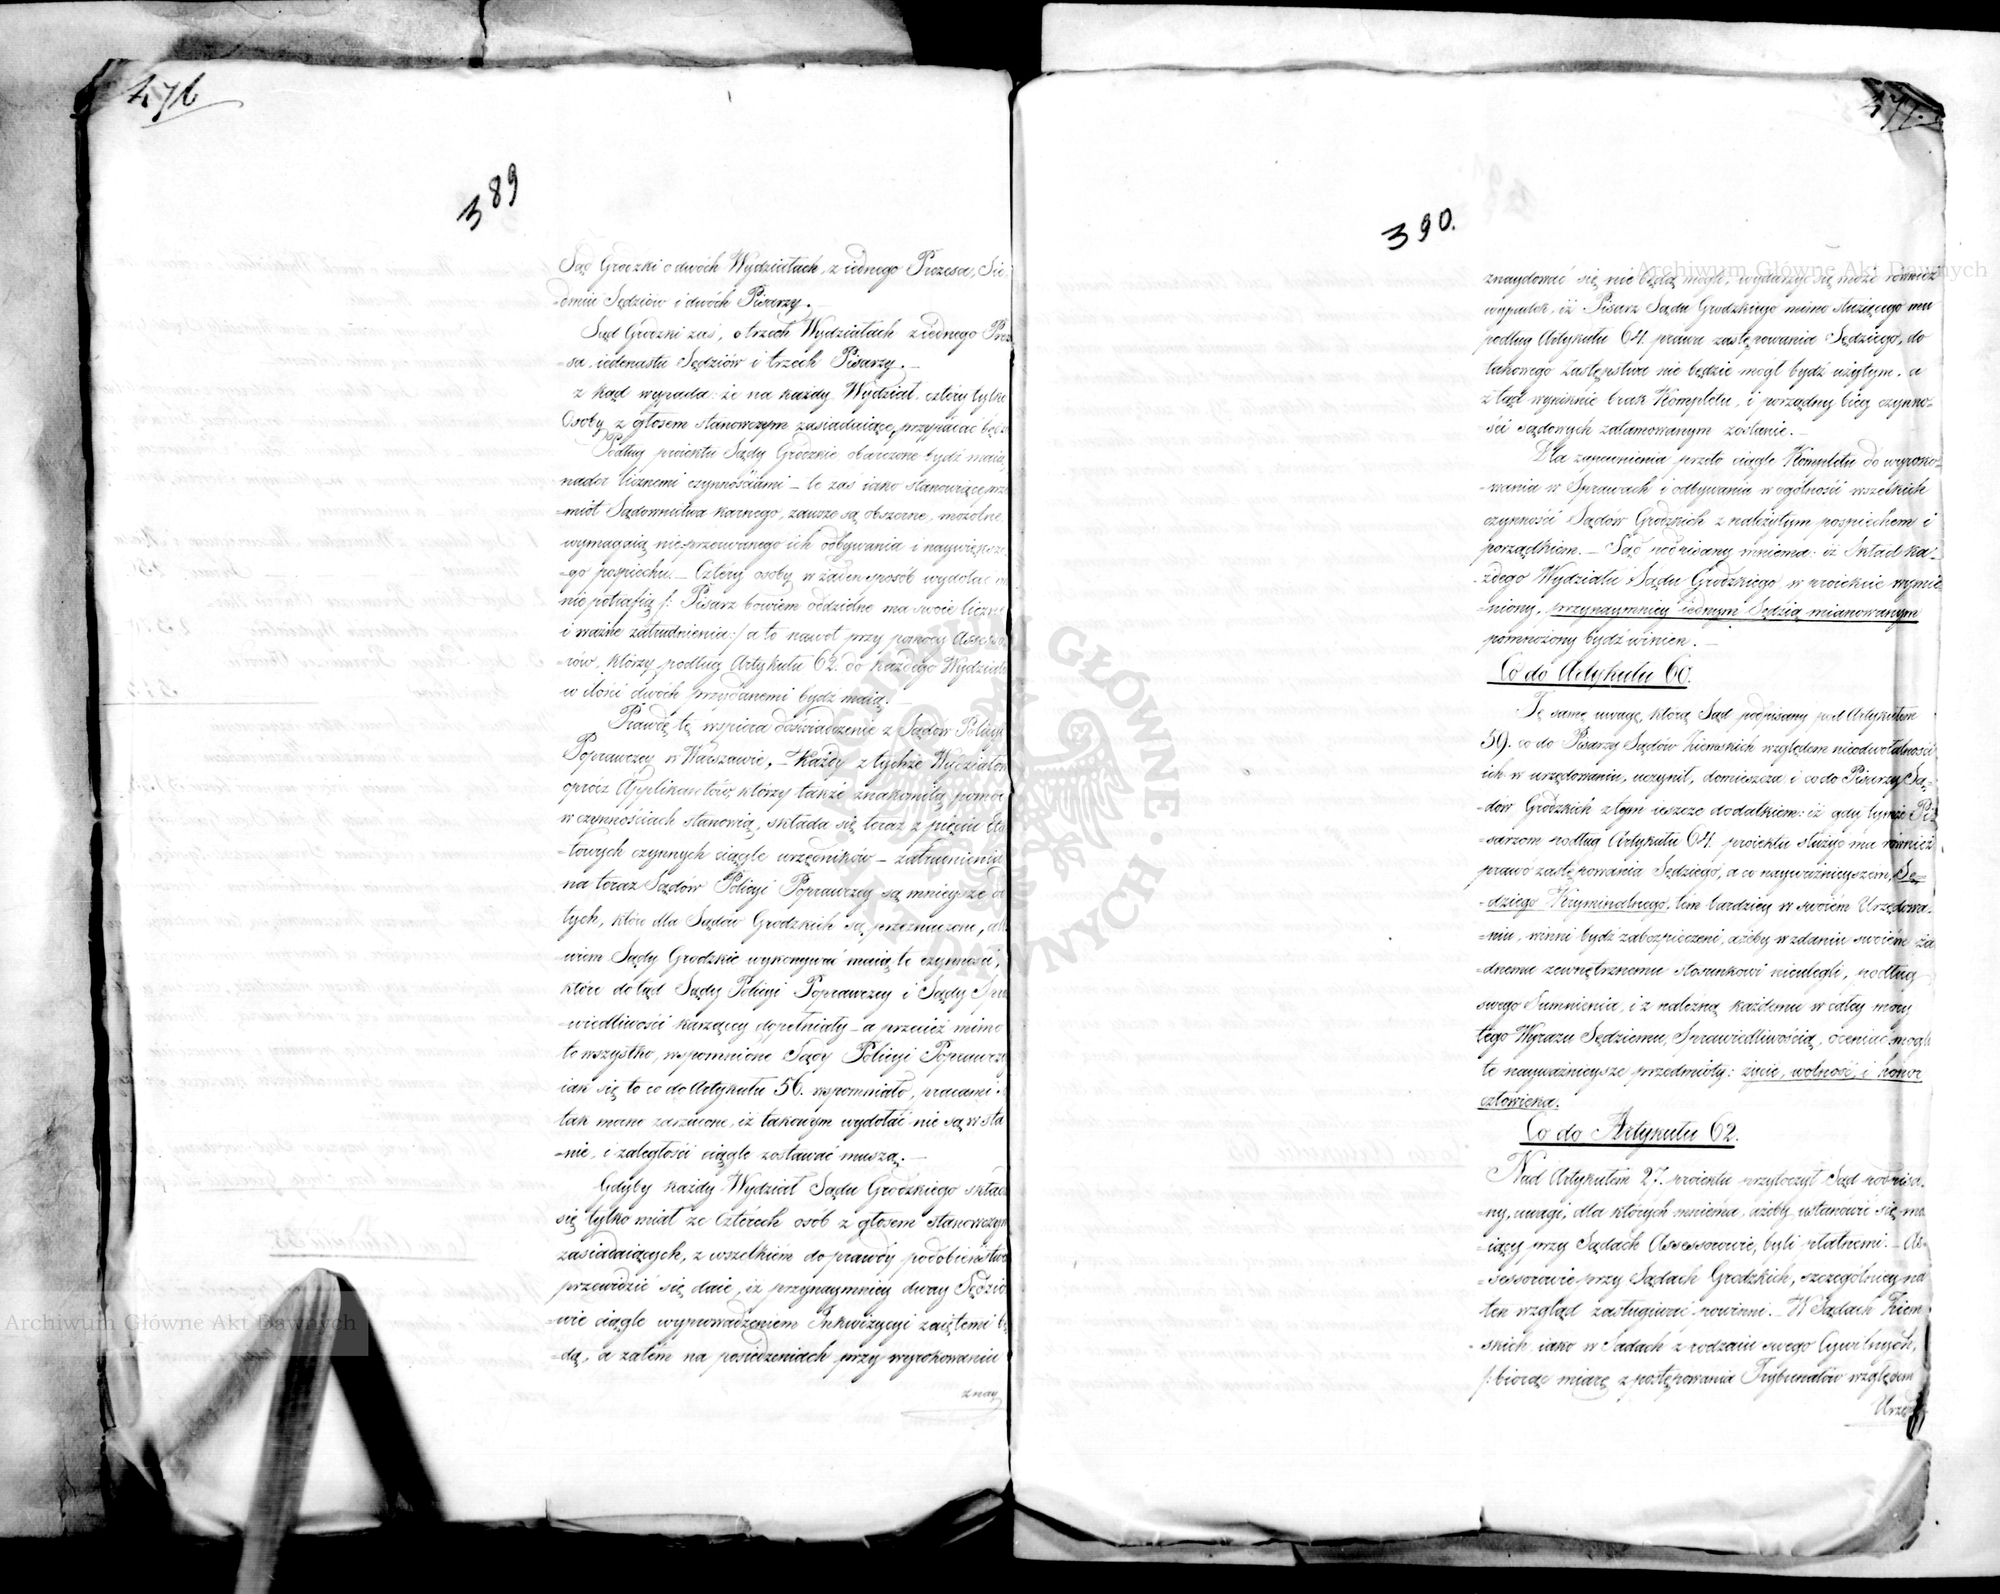 476
389
Sąd Grodzki o dwóch Wydziałach, z iednego Prezesa, Sie-
-dmiu Sędziów i dwóch Pisarzy.
Sąd Grodzki zaś, o trzech Wydziałach z iednego Preze
-sa, iedenastu Sędziów i trzech Pisarzy. –
z kąd wypada: że na każdy Wydział, cztery tylko
Osoby z głosem stanowczym zasiadaiące, przypadać będzie
Podług proiektu Sądy Grodzkie obarczone bydź maią,
nader licznemi czynnościami – te zaś iako stanowiące prze
-miot Sądownictwa karnego, zawsze są obszerne, mozolne,
wymagaią nieprzerwanego ich odbywania i naywiększe-
-go pospiechu. – Cztery osoby w żaden sposób wydołać im
nie potrafią /: Pisarz bowiem oddzielne ma swoie liczne
i ważne zatrudnienia :/ a to nawet przy pomocy Assesso
-rów, którzy podług Artykułu 62. do każdego Wydziału
w ilości dwóch przydanemi bydź maią. –
Prawdę tę wspiera doświadczenie z Sądów Policyi
Poprawczey w Warszawie. – Każdy z tychże Wydziałów
oprócz Applikantów, którzy także znakomitą pomoc
w czynnościach stanowią, składa się teraz z pięciu Eta
-towych czynnych ciągle urzędników – zatrudnienia
na teraz Sądów Policyi Poprawczey są mnieysze od
tych, które dla Sądów Grodzkich są przeznaczone, al
-wiem Sądy Grodzkie wykonywać maią te czynności,
które dotąd Sądy Policyi Poprawczey i Sądy Spra
-wiedliwości karzącey dopełniały – a przecież mimo
to wszystko, wspomnione Sądy Policyi Poprawczey
iak się to co do Artykułu 56. wspomniało, pracami
tak mocno zarzucone, iż takowym wydołać nie są w sta
-nie, i zaległości ciągle zostawać muszą. –
Gdyby każdy Wydział Sądu Grodzkiego składać
się tylko miał ze Czterech osób z głosem stanowczym
zasiadaiących, z wszelkiem do prawdy podobieństwem
przewidzieć się daie, iż przynaymniey dway Sędzio
-wie ciągle wyprowadzeniem Inkwizycyi zaiętemi bę
-dą, a zatem na posiedzeniach przy wyrokowaniu
znay
477.
390.
znaydować się nie będą mogli, wydarzyć się może również
wypadek, iż Pisarz Sądu Grodzkiego mimo służącego mu
podług Artykułu 64. prawa zastępowania Sędziego, do
takowego Zastępstwa nie będzie mógł bydź użytym, a
ztąd wyniknie brak Kompletu, i porządny bieg czynno-
ści sądowych zatamowanym zostanie. –
Dla zapewnienia przeto ciągle Kompletu do wyroko-
-wania w Sprawach i odbywania w ogólności wszelkich
czynności Sądów Grodzkich z należytym pospiechem i
porządkiem. – Sąd podpisany mniema: iż Skład ka-
-żdego Wydziału Sądu Grodzkiego w proiekcie wymie
-niony, przynaymniey iednym Sędzią mianowanym
pomnożony bydź winien. –
Co do Artykułu 60.
Tę samę uwagę, którą Sąd podpisany pod Artykułem
59. co do Pisarzy Sądów Ziemskich względem nieodwołalności
ich w urzędowaniu, uczynił, domieszcza i co do Pisarzy Są-
-dów Grodzkich z tym ieszcze dodatkiem: iż gdy tymże Pi
sarzom podług Artykułu 64. proiektu służyć ma również
prawo zastępowania Sędziego, a co nayważnieyszem, Sę-
-dziego Kryminalnego, tem bardziey w swoiem Urzędowa-
-niu, winni bydź zabezpieczeni, ażeby w zdaniu swoiem ża
-dnemu zewnętrznemu stosunkowi nieulegli, podług
swego Sumnienia, i z należną każdemu w całey mocy
tego Wyrazu Sędziemu, Sprawiedliwością, oceniać mogli
te nayważnieysze przedmioty: życie, wolność, i honor
człowieka.
Co do Artykułu 62.
Nad Artykułem 27. proiektu przytoczył Sąd podpisa-
-ny, uwagi, dla których mniema, ażeby ustanowić się ma
-iący przy Sądach Assessorowie, byli płatnemi. – As-
-sessorowie przy Sądach Grodzkich, szczególniey na
ten wzgląd zasługiwać powinni. – W Sądach Ziem
-skich, iako w Sądach z rodzaiu swego Cywilnych,
/: biorąc miarę z postępowania Trybunałów względem
Urzęd
Archiwum Główne Akt Dawnych
Archiwum Główne Akt Dawnych